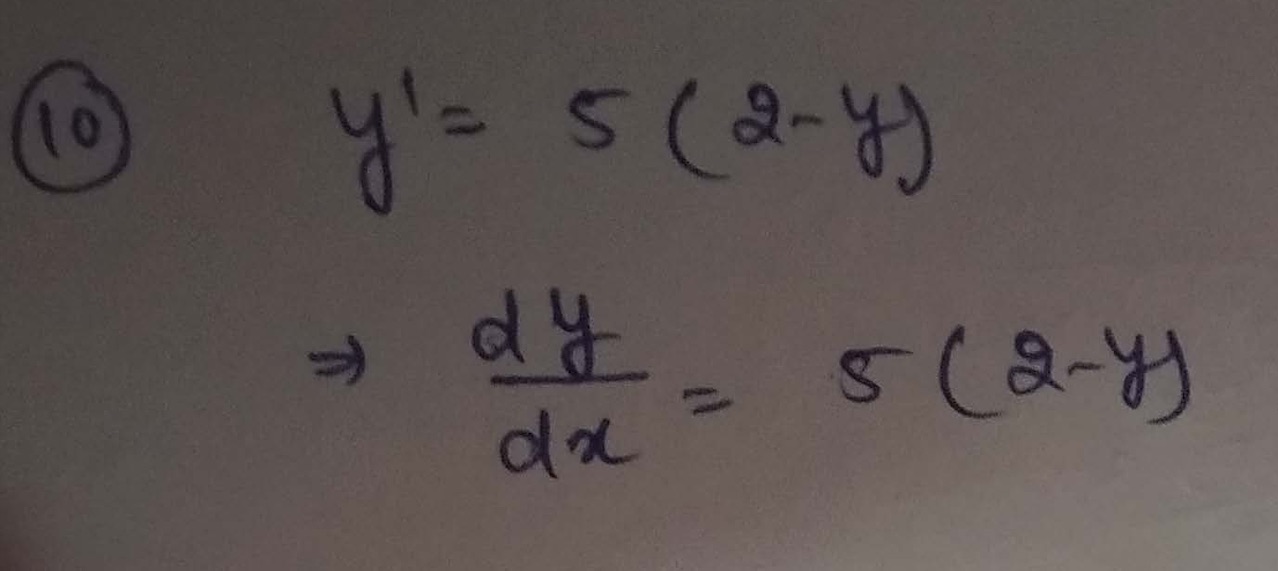 ⑩ y' = 5(2-y)
⇒ dy/dx = 5(2-y)